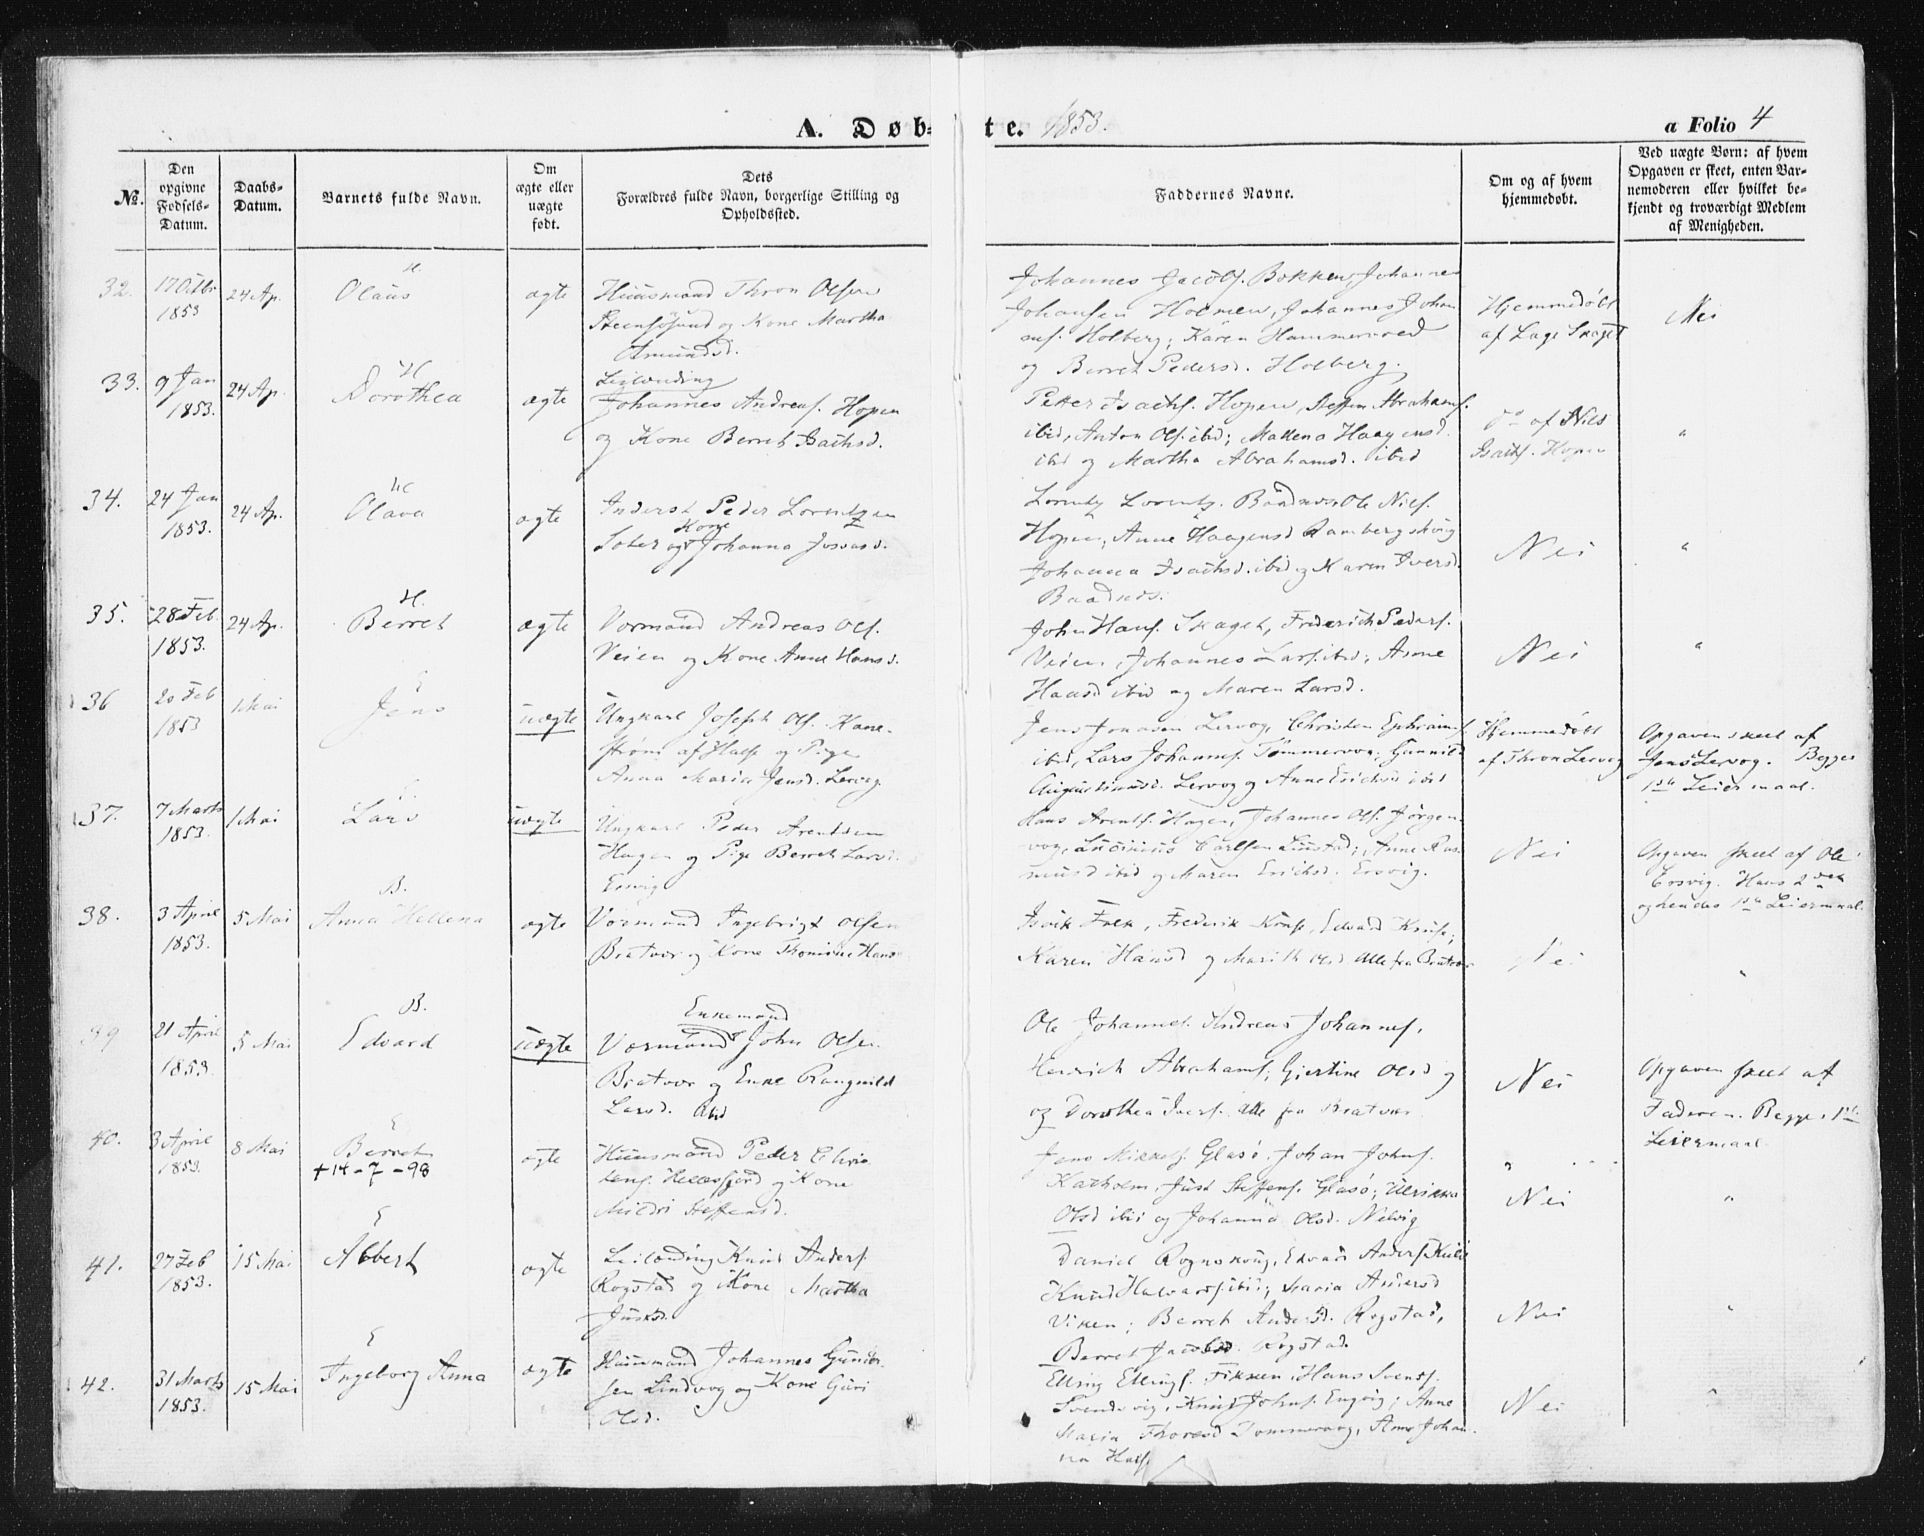 A. Døb- te. 1853.
a Folio 4
No.
Den opgivne Fødsels-Datum.
Daabs-Datum.
Barnets fulde Navn.
Om ægte eller uægte født.
Dets Forældres fulde Navn, borgerlige Stilling og Opholdssted.
Faddernes Navne.
Om og af hvem hjemmedøbt.
Ved uægte Børn: af hvem Opgaven er skeet, enten Barnemoderen eller hvilket bekjendt og troværdigt Medlem af Menigheden.
32. 17 Octbr 1853 24 Ap. H. Olaus ægte
Huusmand Thron Olsen
Steensøsund og Kone Martha
Amundsd.
Johannes Jacobs. Bekken, Johannes
Johansen Holmen, Johannes Johan
ens. Holberg; Karen Hammernød
og Berret Pedersd. Holberg.
Hjemmedøbt
af Lage Skaget
Nei
33. 9 Jan 1853. 24 Ap. H Dorothea ægte
Leilænding
Johannes Andreas. Hopen
og Kone Berret Isachsd.
Petter Isachs. Hopen, Steffen Abrahams.
ibid, Anton Ols. ibid; Mallena Haagensd.
ibid og Martha Abrahamsd. ibid
do af Nils
Isachs. Hopen
"
34. 24 Jan 1853. 24 Ap. H Olava ægte
Inderst Peder Lorentzen
Kone
og Johanna
Lorentz Lorentz. Baadnes Ole Nils.
Hopen, Anne Haagensd Rambergskoug
Johanna Isachsd. ibid og Karen Iversd.
Baadnes.
Nei
"
35. 28 Feb. 1853. 24 Ap. H. Berret ægte
Vormand Andreas Ols.
Veien og Kone Anne Hansd.
John Hans. Skaget, Friderich Peders.
Veien, Johannes Lars. ibid; Anne
Hansd ibid og Maren Larsd.
Nei
"
36 20 Feb 1853 1 Mai E Jens uægte
Ungkarl Joseph Ols. Kane-
strøm af Halse og Pige
Anna Maria Jensd. Lervog.
Jens Jonasen Lervog, Christen Ephraims.
ibid, Lars Johannes. Tømmervog; Gunnild
Augustinusd. Lervog og Anne Erichsd ibid
Hjemmedøbt
af Thron Lervog
Opgaven skeet af
Jens Lervog. Begges
1ste Leiermaal.
37. 7 Marts 1853. 1 Mai E. Lars uægte
Ungkarl Peder Arentsen
Hagen og Pige Berret Larsd.
Ersvig
Hans Arents. Hagen, Johannes Ols. Jørgen-
vog, Carlsen; Anne Ras
musd ibid og Maren Erichsd. Ersvig.
Nei
Opgaven skeet af Ole
Ersvig. Hans 2det
og hendes 1ste Leiermaal.
38. 3 April 1853. 5 Mai B. Anna Hellena ægte
Vormand Ingebrigt Olsen
Bratvær og Kone Thomine Hans
Falk, Frederik Kruse, Edvard Kruse;
Karen Hansd og Marith Olsd Alle fra Bratvær
Nei
"
39 21 April 1853. 5 Mai B. Edvard uægte
Enkemand
Vormand John Olsen
Bratvær og Enke Rangnild
Larsd. ibid
Ole Johannes. Andreas Johannes.
Henrich Abrahams; Gjertine Olsd og
og Dorothea Ivers. Alle fra Bratvær
Nei
Opgaven skeet af
Faderen. Begges 1ste
Leiermaal
40. 3 April 1853. 8 Mai E Berret
+ 14-7-98
ægte
Huusmand Peder Chris
tens. og Kone
Mildri Steffensd.
Jens Mikkels. Glasø. Johan Johns.
Katholm, Just Steffens. Glasø; Ulrikka
Olsd ibid og Johanna Olsd. Nelvig
Nei
"
41. 27 Feb 1853. 15 Mai E Albert ægte
Leilænding Knud Anders.
Rogstad og Kone Martha
Justsd.
Daniel Rognskoug, Edvard Anders.
Knud Halvors. ibid; Maria Andersd
Viken; Berret Andersd. Rogstad,
Berret Jacobsd. Rogstad.
Nei
"
42. 31 Marts 1853. 15 Mai E Ingeborg Anna ægte
Huusmand Johannes Gunder-
sen Lindvog og Kone Guri
Olsd.
Elling Ellings. Fikken, Hans Svends.
Svendsvig, Knud Johns. Engvig; Anne
Maria Thoresd Tømmervog, Anne Johan
na Hals.
Nei
"